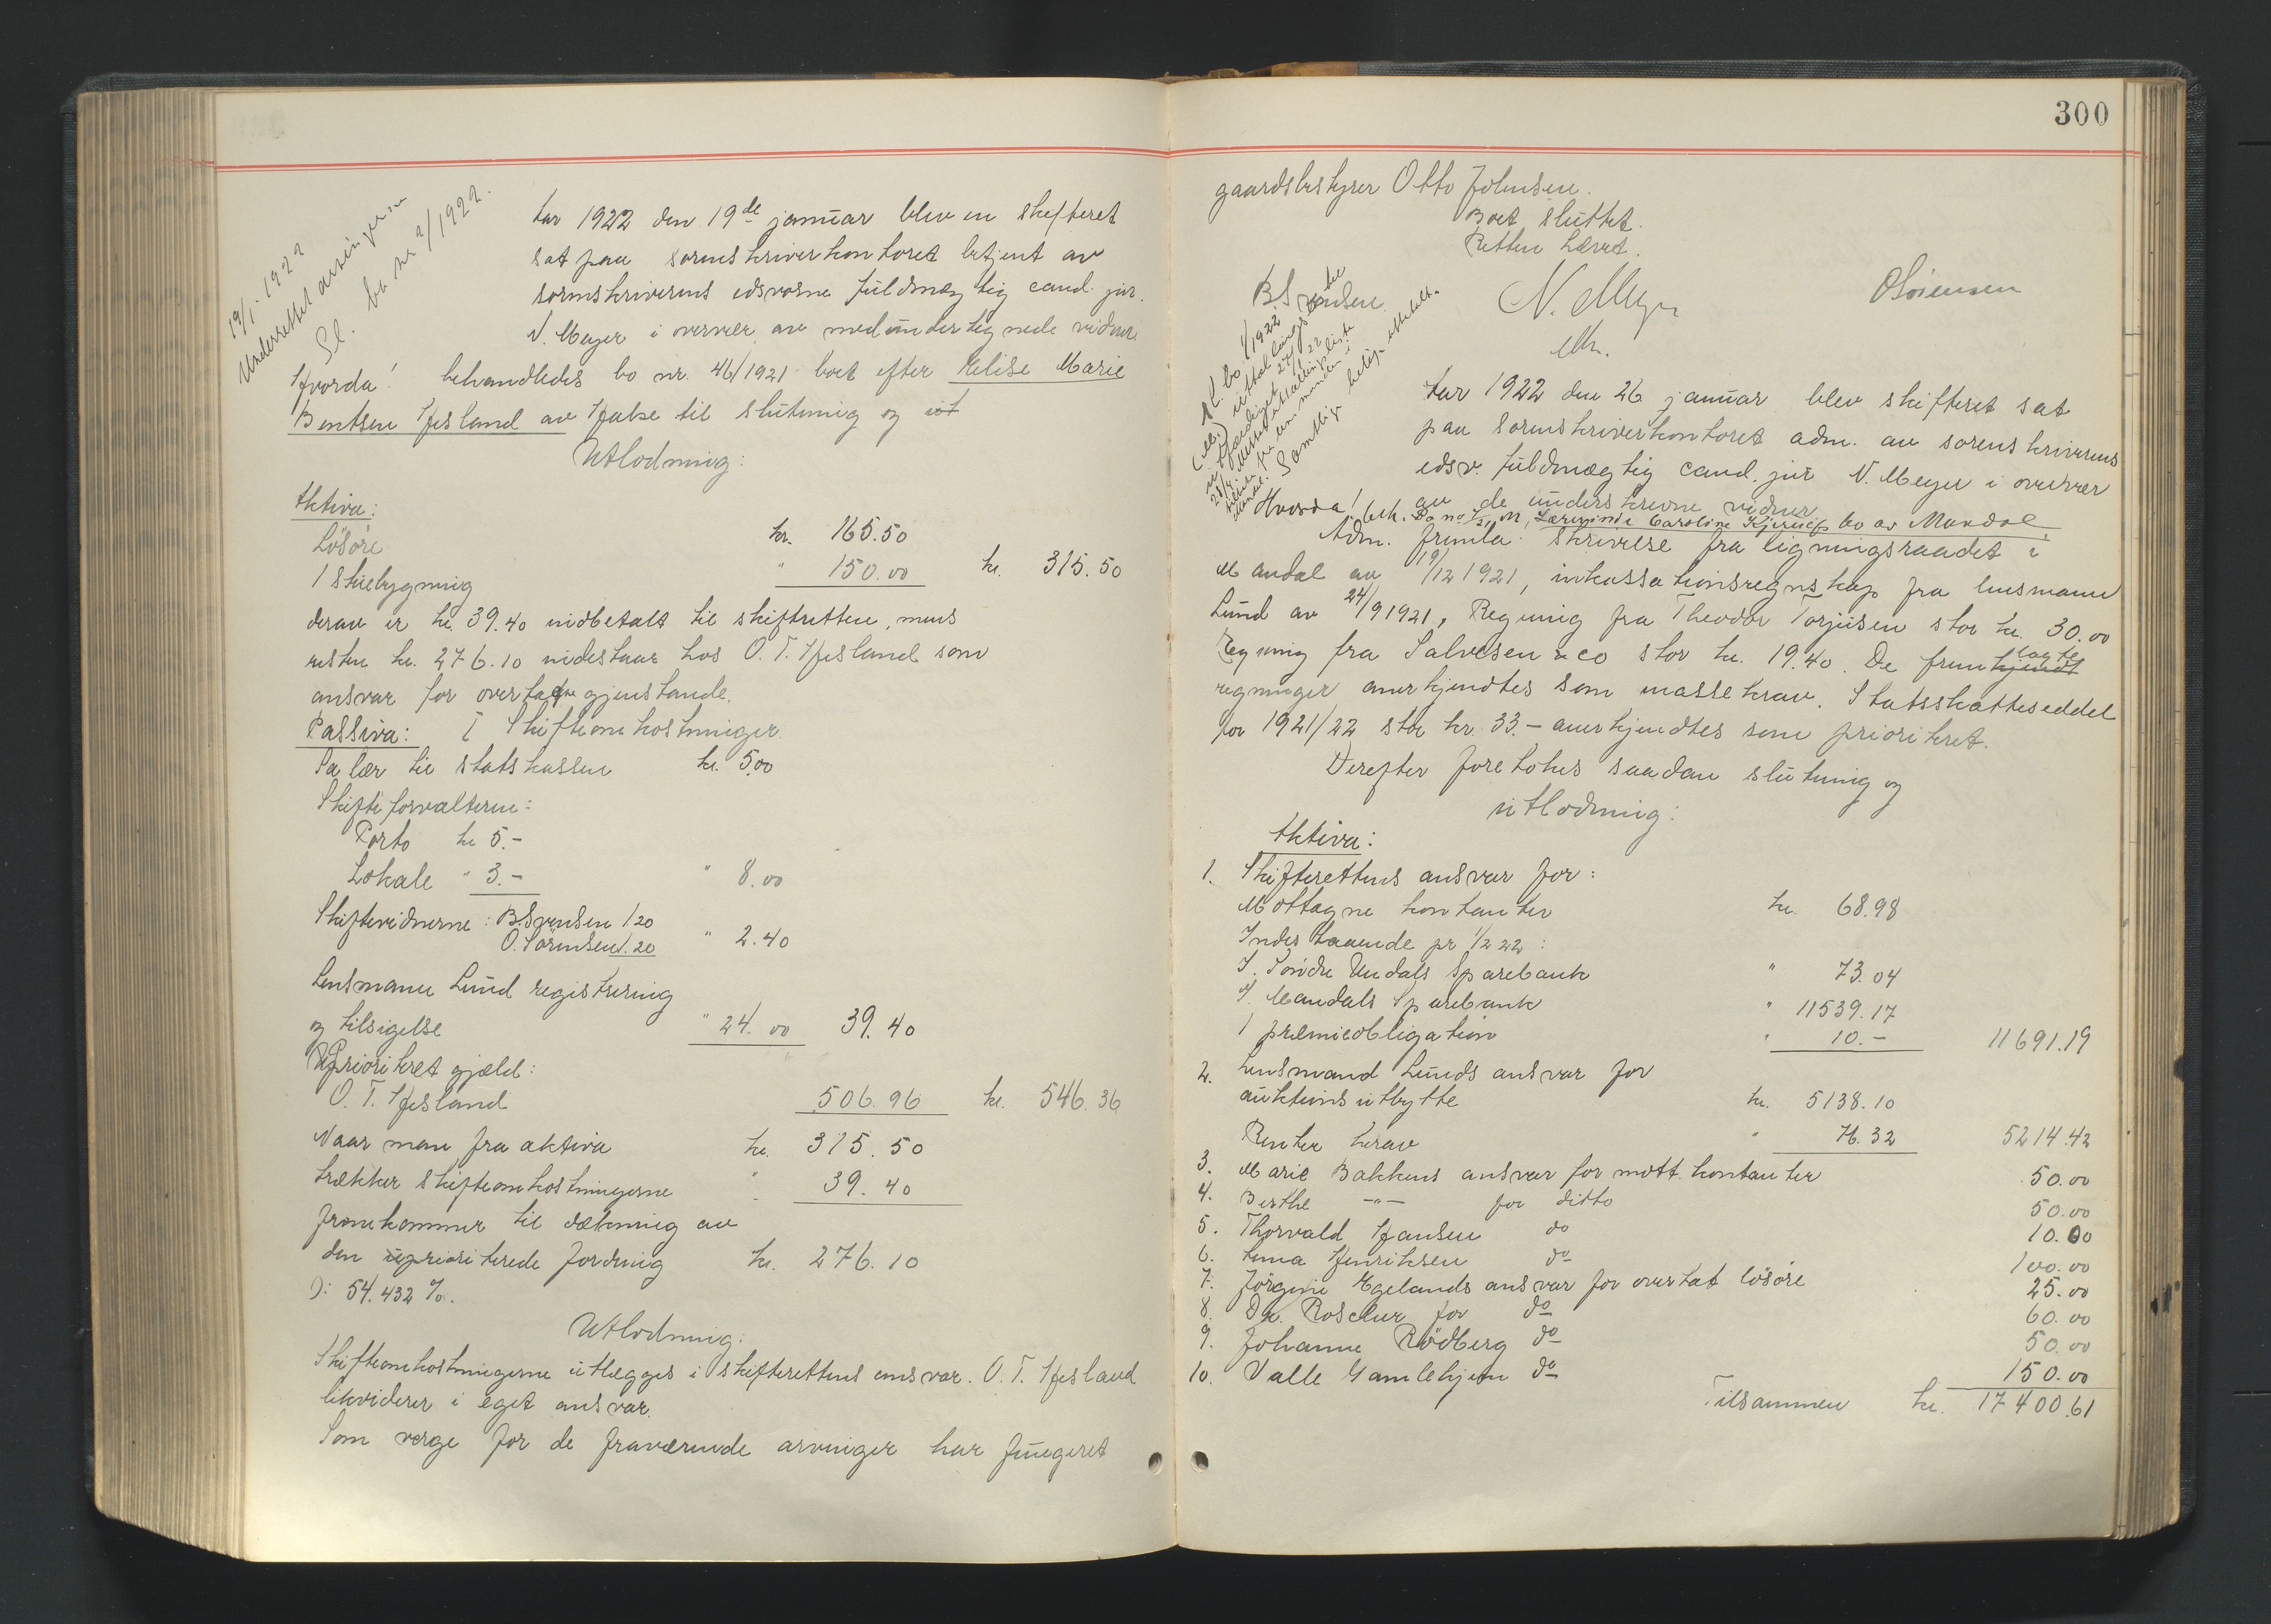 19/1 1922
Underrettet arvingerne
Sl. bo nr 2/1922.
Aar 1922 den 19de januar blev en skifteret
sat paa sorenskriverkontoret betjent av
sorenskriverens edsvorne fuldmægtig cand. jur.
N. Meyer i overvær av medundertegnede vidner.
Hvorda! behandledes bo nr. 46/1921 boet efter Elise Marie
Bentsen Hesland av Halse til slutning og ut
Utlodning:
Aktiva:
Lösöre kr. 165.50
1 skuebygning " 150.00 kr. 315.50
derav er kr. 39.40 indbetalt til skifteretten, mens
resten kr. 276.10 indestaar hos O. T. Hesland som
ansvar for overtagne gjenstande.
Passiva: I Skifteomkostninger
Salær til statskassen kr. 5.00
Skifteforvalteren:
Porto kr 5.-
Lokale " 3.- " 8.00
Skiftevidnerne: B. Svendsen 1.20
O. Sörensen 1.20 " 2.40
Lensmann Lund registrering
og tilsigelse " 24.00 39.40
Uprioritret gjæld:
O. T. Hesland 506.96 kr. 546.36
Naar man fra aktiva kr. 315.50
trækker skifteomkostningerne " 39.40
fremkommer til dækning av
den uprioriterede fordring kr. 276.10
ↄ: 54.432 %.
Utlodning:
Skifteomkostningerne utlægges i skifterettens ansvar. O. T. Hesland
likviderer i eget ansvar.
Som verge for de fraværende arvinger har fungeret
300
gaardsbestyrer Otto Johnsen.
Boet sluttet.
Retten hævet.
B. Svendsen. N. Meyer O Sörensen
Mr.
Sl. bo 1/1922
Samtlige beløp utbetalt.
Aar 1922 den 26 januar blev skifteret sat
paa sorenskriverkontoret adm. av sorenskriverens
edsv. fuldmægtig cand. jur N. Meyer i overvær
av de underskrevne vidner
Hvorda! beh. Bo no 1/21 M, Lærerinde Caroline Kjerulfs bo av Mandal.
Adm. fremla: skrivelse fra ligningsraadet i
Mandal av 19/12 1921, inkassationsregnskap fra lensmann
Lund av 24/9 1921, Regning fra Theodor Torjusen stor kr. 30.00
Regning fra Salvesen & co stor kr. 19.40. De fremlagte
regninger anerkjendtes som massekrav. Statsskatteseddel
for 1921/22 stor kr. 33.- anerkjendtes som prioriteret.
Derefter foretokes saadan slutning og
utlodning:
Aktiva:
1. Skifterettens ansvar for:
Mottagne kontanter kr. 68.98
Indestaaende pr 1/2 22:
I. Söndre Undals Sparebank " 73.04
I. Mandals Sparebank " 11539.17
1 præmieobligation " 10.- 11691.19
2. Lensmand Lunds ansvar for
auktionsutbytte kr. 5138.10
Renter herav " 76.32 5214.42
3. Marie Bakkens ansvar for mott. kontanter 50.00
4. Berthe -"- for ditto 50.00
5. Thorvald Hansen do 10.00
6. Anna Henriksen do 100.00
7. Jörgine Egelands ansvar for overtat lösöre 25.00
8. Dr. Roscher for do 60.00
9. Johanne Rödberg do 50.00
10. Valle Gamlehjem do 150.00
Tilsammen kr. 17400.61